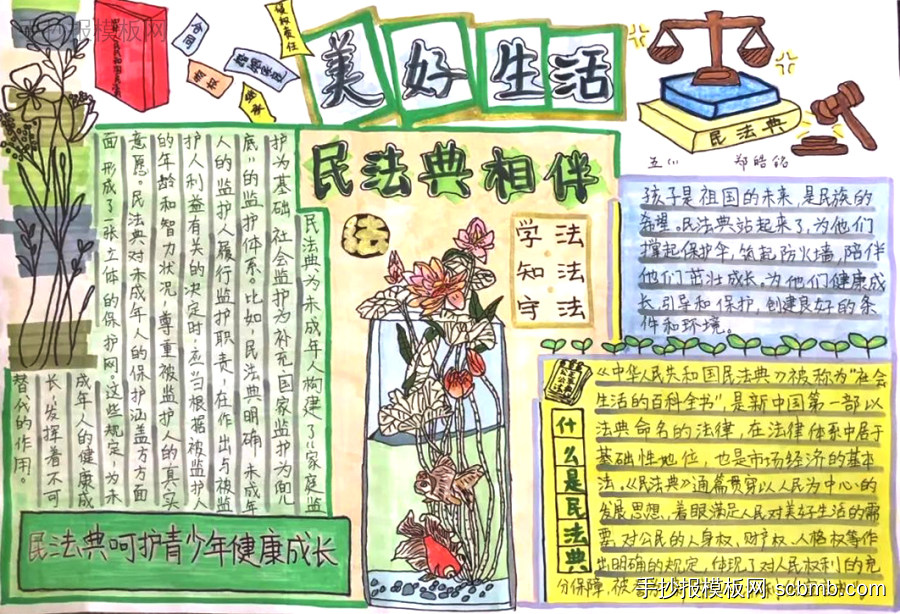 手抄报模板网
合同
物权
婚姻家庭
继承
侵权责任
美好生活
民法典
五(1) 郑皓铭
民法典相伴
法
学法
知法
守法
民法典为未成年人构建了以“家庭监
护为基础、社会监护为补充、国家监护为兜
底”的监护体系。比如,民法典明确,未成年
人的监护人履行监护职责,在作出与被监
护人利益有关的决定时,应当根据被监护人
的年龄和智力状况,尊重被监护人的真实
意愿。民法典对未成年人的保护涵盖方方面
面,形成了一张立体的保护网,这些规定,为未
成年人的健康成
长,发挥着不可
替代的作用。
民法典呵护青少年健康成长
孩子是祖国的未来,是民族的
希望。民法典站起来了,为他们
撑起保护伞,筑起防火墙,陪伴
他们茁壮成长。为他们健康成
长、引导和保护,创建良好的条
件和环境。
什么是民法典
《中华人民共和国民法典》被称为“社会
生活的百科全书”,是新中国第一部以
法典命名的法律,在法律体系中居于
基础性地位,也是市场经济的基本
法。《民法典》通篇贯穿以人民为中心的
发展思想,着眼满足人民对美好生活的需
要,对公民的人身权、财产权、人格权等作
出明确的规定,体现了对人民权利的充
分保障,被
手抄报模板网 scbmb.com